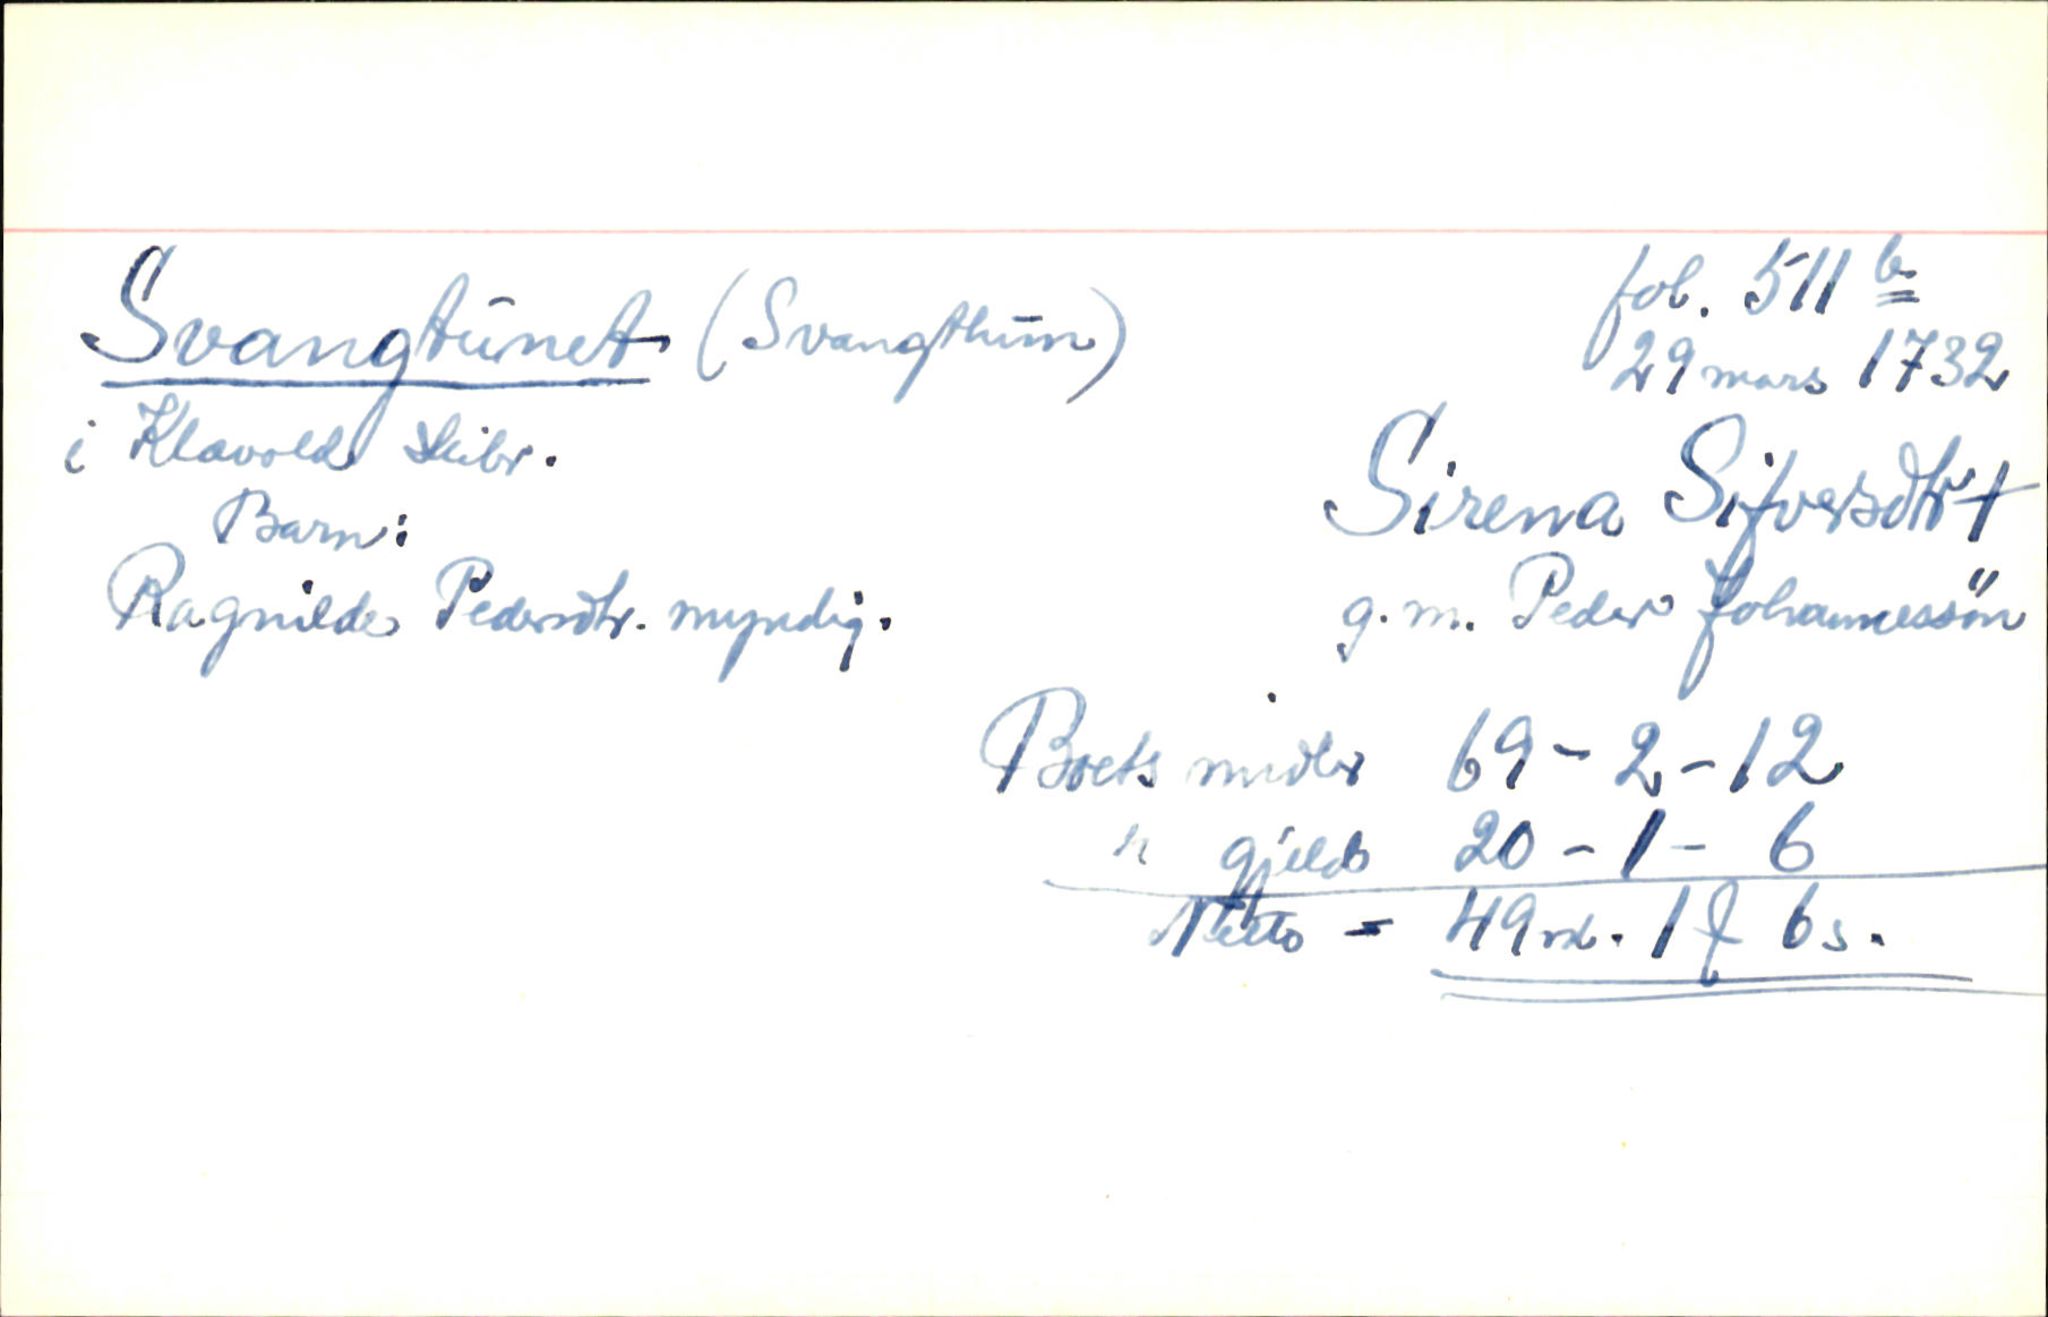 Svangtūnet (Svangthūm)
i Klavold skibr.
Barn:
Ragnilde Pedersdtr. myndig.
fol. 511 b.
29 mars 1732
Sirena Sifversdtr †
g. m. Peder Johannessön
Boets midler 69 - 2 - 12
" gjeld 20 - 1 - 6
Netto = 49 rd. 1 ƒ 6 s.